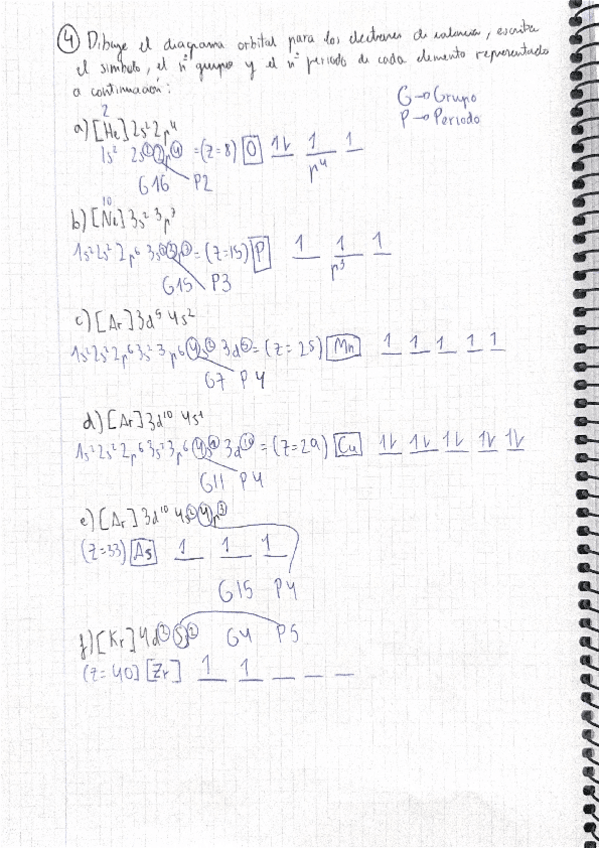 ④ Dibuje el diagrama orbital para los electrones de valencia, escriba
el símbolo, el nº grupo y el nº periodo de cada elemento representado
a continuación:
G→Grupo
P→Periodo
2
a) [He] 2s² 2p⁴
1s² 2s② ②p④ = (Z=8) O 1↓ 1 1
p⁴
G16 P2
10
b) [Ne] 3s² 3p³
1s² 2s² 2p⁶ 3s② ③p③ = (Z=15) P 1 1 1
p³
G15 P3
c) [Ar] 3d⁵ 4s²
1s² 2s² 2p⁶ 3s² 3p⁶ ④s② 3d⑤ = (Z=25) Mn 1 1 1 1 1
G7 P4
d) [Ar] 3d¹⁰ 4s¹
1s² 2s² 2p⁶ 3s² 3p⁶ ④s① 3d⑩ = (Z=29) Cu 1↓ 1↓ 1↓ 1↓ 1↓
G11 P4
e) [Ar] 3d¹⁰ 4s② ④p③
(Z=33) As 1 1 1
G15 P4
f) [Kr] 4d② ⑤s② G4 P5
(Z=40) [Zr] 1 1